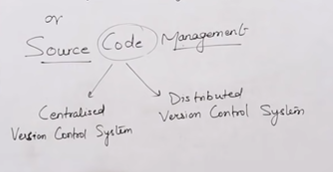 or
Source Code Management
Centralised
Version Control System
Distributed
Version Control System